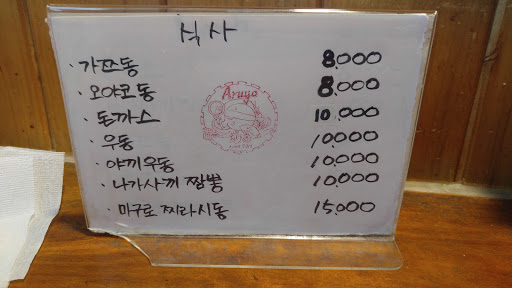 식사
· 가쯔동 8,000
· 오야코동 8,000
· 돈까스 10,000
· 우동 10,000
· 야끼우동 10,000
· 나가사끼 짬뽕 10,000
· 마구로 찌라시동 15,000
Aruyo